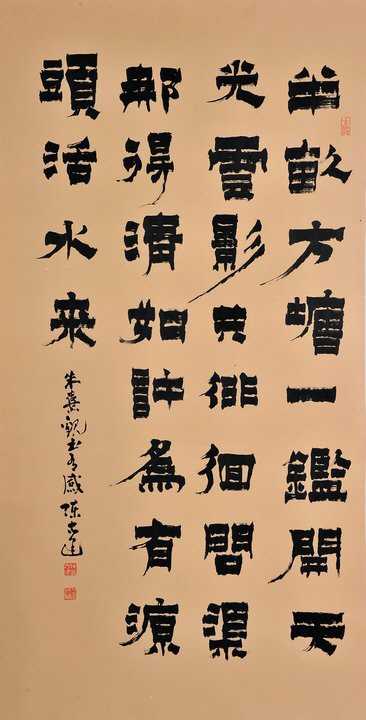 半畝方塘一鑑開天
光雲影共徘徊問渠
那得清如許為有源
頭活水來
朱熹觀書有感 陳